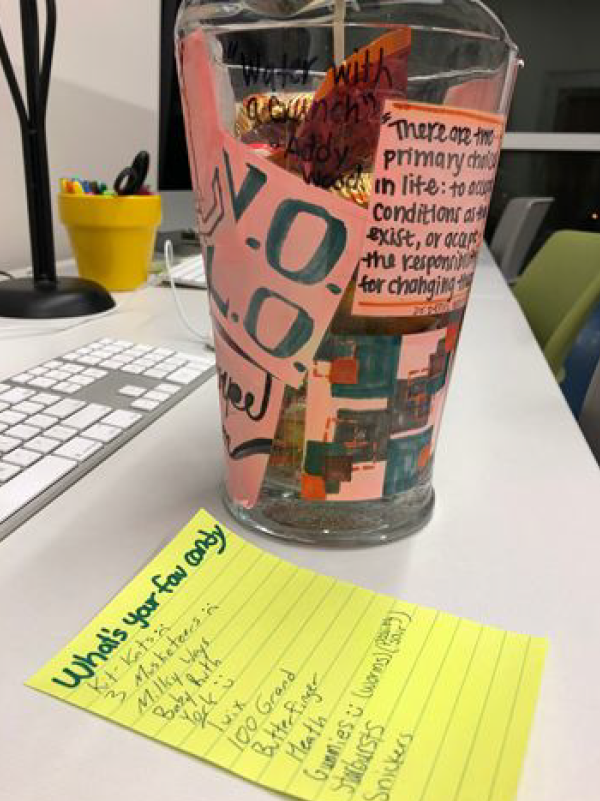 "Water with
a crunch"
- Addy
"There are two
primary choices
in life: to accept
conditions as they
exist, or accept
the responsibility
for changing them
Y.O.
L.O.
What's your fav candy
Kit-Kats :)
3 Musketeers :)
Milky Ways
Baby Ruth
Twix
100 Grand
Butterfinger
Heath
Gummies :) (worms) (sour)
Starbursts
Snickers